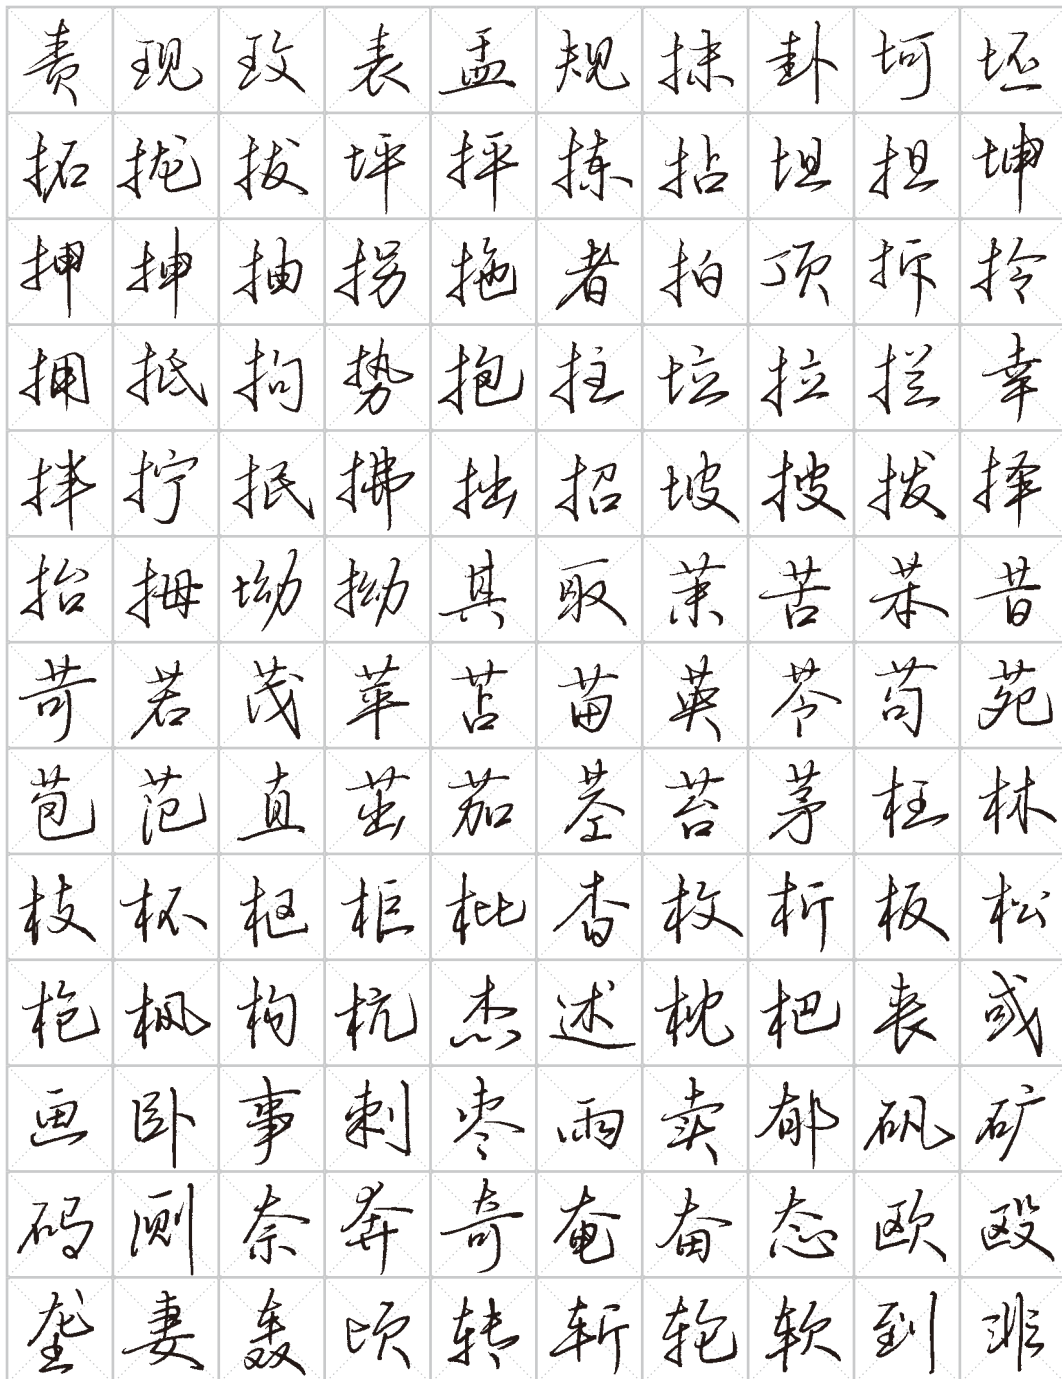 责现玫表盂规抹卦坷坯
拓拢拔坪抨拣拈坦担坤
押抻抽拐拖者拍顶拆拎
拥抵拘势抱拄垃拉拦幸
拌拧抿拂拙招坡披拨择
抬拇坳拗其取茉苦苯昔
苛若茂苹苫苗英苓苟苑
苞范直茁茄茎苔茅枉林
枝杯枢柜枇杳枚析板松
枪枫构杭杰述枕杷丧或
画卧事刺枣雨卖郁矾矿
码厕奈奔奇奄奋态欧殴
垄妻轰顷转斩轮软到非